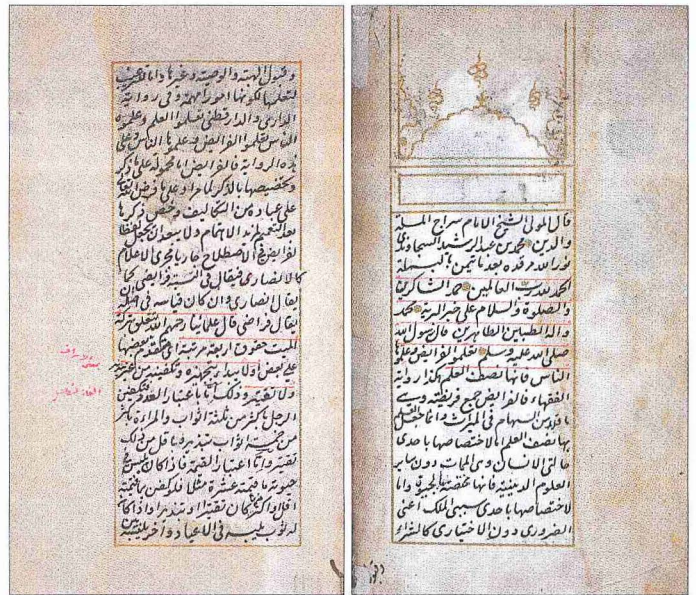 قال المولى الشيخ الامام سراج الملة
والدين محمد بن عبد الرشيد السجاوندي
نور الله مرقده بعد ما تيمن بالبسملة
الحمد لله رب العالمين حمد الشاكرين
والصلوة والسلام على خير البرية محمد
واله الطيبين الطاهرين قال رسول الله
صلى الله عليه وسلم تعلموا الفرايض وعلموها
الناس فانها نصف العلم هكذا رواية
الفقهاء فالفرايض جمع فريضة وهي
ما قدر من السهام في الميراث وانما جعل العلم
بها نصف العلم اما لاختصاصها باحدى
حالتي الانسان وهي الممات دون ساير
العلوم الدينية فانها مختصة بالحيوة واما
لاختصاصها باحدى سببي الملك اعني
الضروري دون الاختياري كالشراء
وقبول الهبة والوصية وغيرها واما للترغيب
لتعلمها لكونها امورا مهمة وفي رواية
الدارمي والدارقطني تعلموا العلم وعلموه
الناس تعلموا الفرايض وعلموها الناس وعلى
هذه الرواية فالفرايض اما محمولة على ما ذكر
وتخصيصها بالذكر لما مر او على ما فرض الله تعالى
على عباده من التكاليف وخص ذكرها
بعد التعميم لمزيد الاهتمام ولا يبعد ان يجعل لفظ
الفرايض في الاصطلاح جاريا مجرى الاعلام
كالانصاري فيقال في النسبة فرايضي كما
يقال انصاري وان كان قياسه في اصله ان
يقال فراضي قال علمائنا رحمهم الله تتعلق بتركة
الميت حقوق اربعة مرتبة اي متقدم بعضها
على بعض الاول يبدأ بتجهيزه وتكفينه من غير تبذير
ولا تقتير وذلك اما باعتبار العدد فتكفين
الرجل باكثر من ثلثة اثواب والمراة باكثر
من خمسة اثواب تبذير وباقل من ذلك
تقتير واما باعتبار القيمة فاذا كان يلبس في
حيوته ما قيمته عشرة مثلا فلو كفن بما قيمته
اقل او اكثر كان تقتيرا او تبذيرا واذا كان
له ثوب يلبسه في الاعياد واخر يلبسه بين